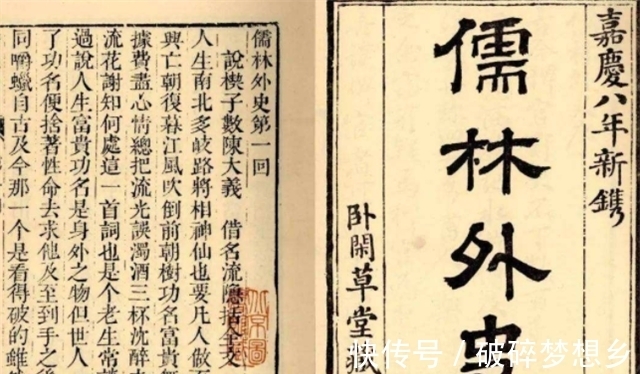 嘉慶八年新鐫
儒林外史
卧閑草堂
儒林外史第一回
說楔子敷陳大義 借名流隱括全文
人生南北多歧路將相神仙也要凡人做
興亡朝復暮江風吹倒前朝樹功名富貴無
據費盡心情總把流光誤濁酒三杯沈醉去
流花謝知何處這一首詞也是个老生常
過說人生富貴功名是身外之物但世人
了功名便捨著性命去求他及至到手之後
同嚼蠟自古及今那一個是看得破的雖
快传号 / 破碎梦想乡